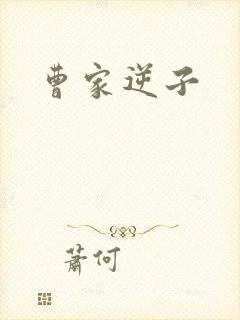 曹家逆子
萧何